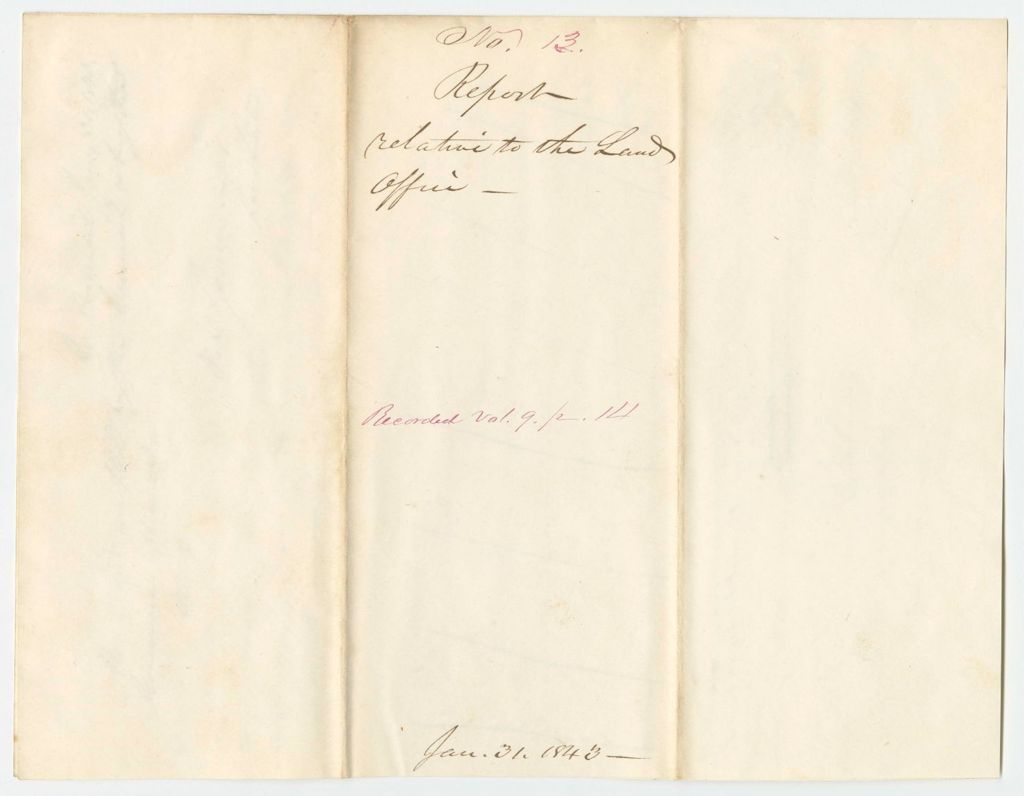 No. 13.
Report
relative to the Land
Office —
Recorded Vol. 9. p. 14
Jan. 31. 1843 —